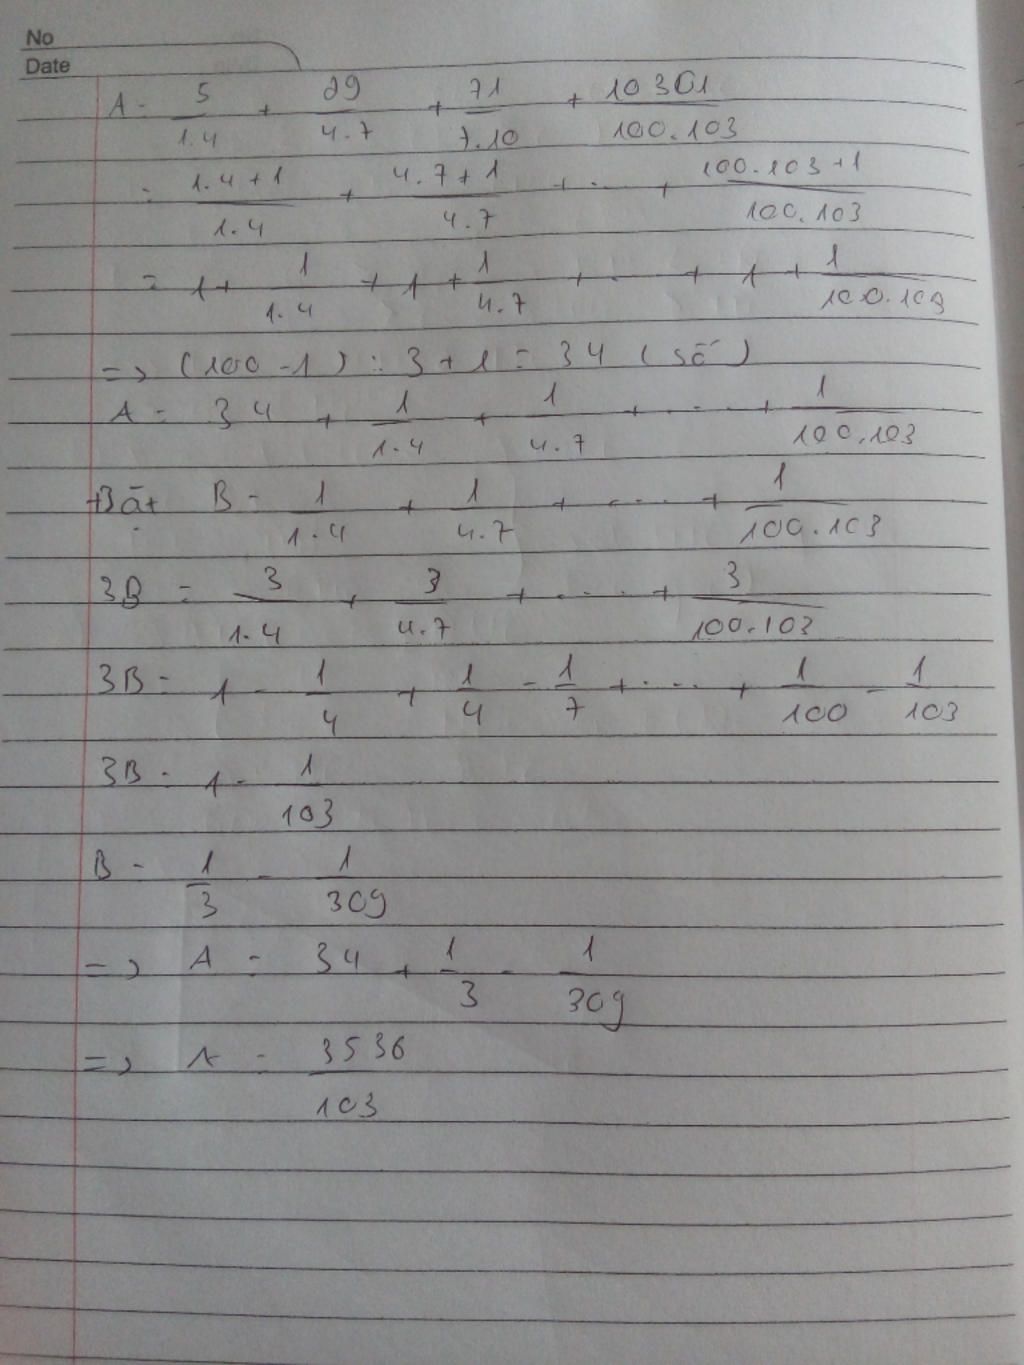 No
Date
A = 5/1.4 + 29/4.7 + 71/7.10 + 10301/100.103
= 1.4+1/1.4 + 4.7+1/4.7 + ... + 100.103+1/100.103
= 1 + 1/1.4 + 1 + 1/4.7 + ... + 1 + 1/100.103
=> (100 - 1) : 3 + 1 = 34 (số)
A = 34 + 1/1.4 + 1/4.7 + ... + 1/100.103
+Đặt B = 1/1.4 + 1/4.7 + ... + 1/100.103
3B = 3/1.4 + 3/4.7 + ... + 3/100.103
3B = 1 - 1/4 + 1/4 - 1/7 + ... + 1/100 - 1/103
3B = 1 - 1/103
B = 1/3 - 1/309
=> A = 34 + 1/3 - 1/309
=> A = 3536/103